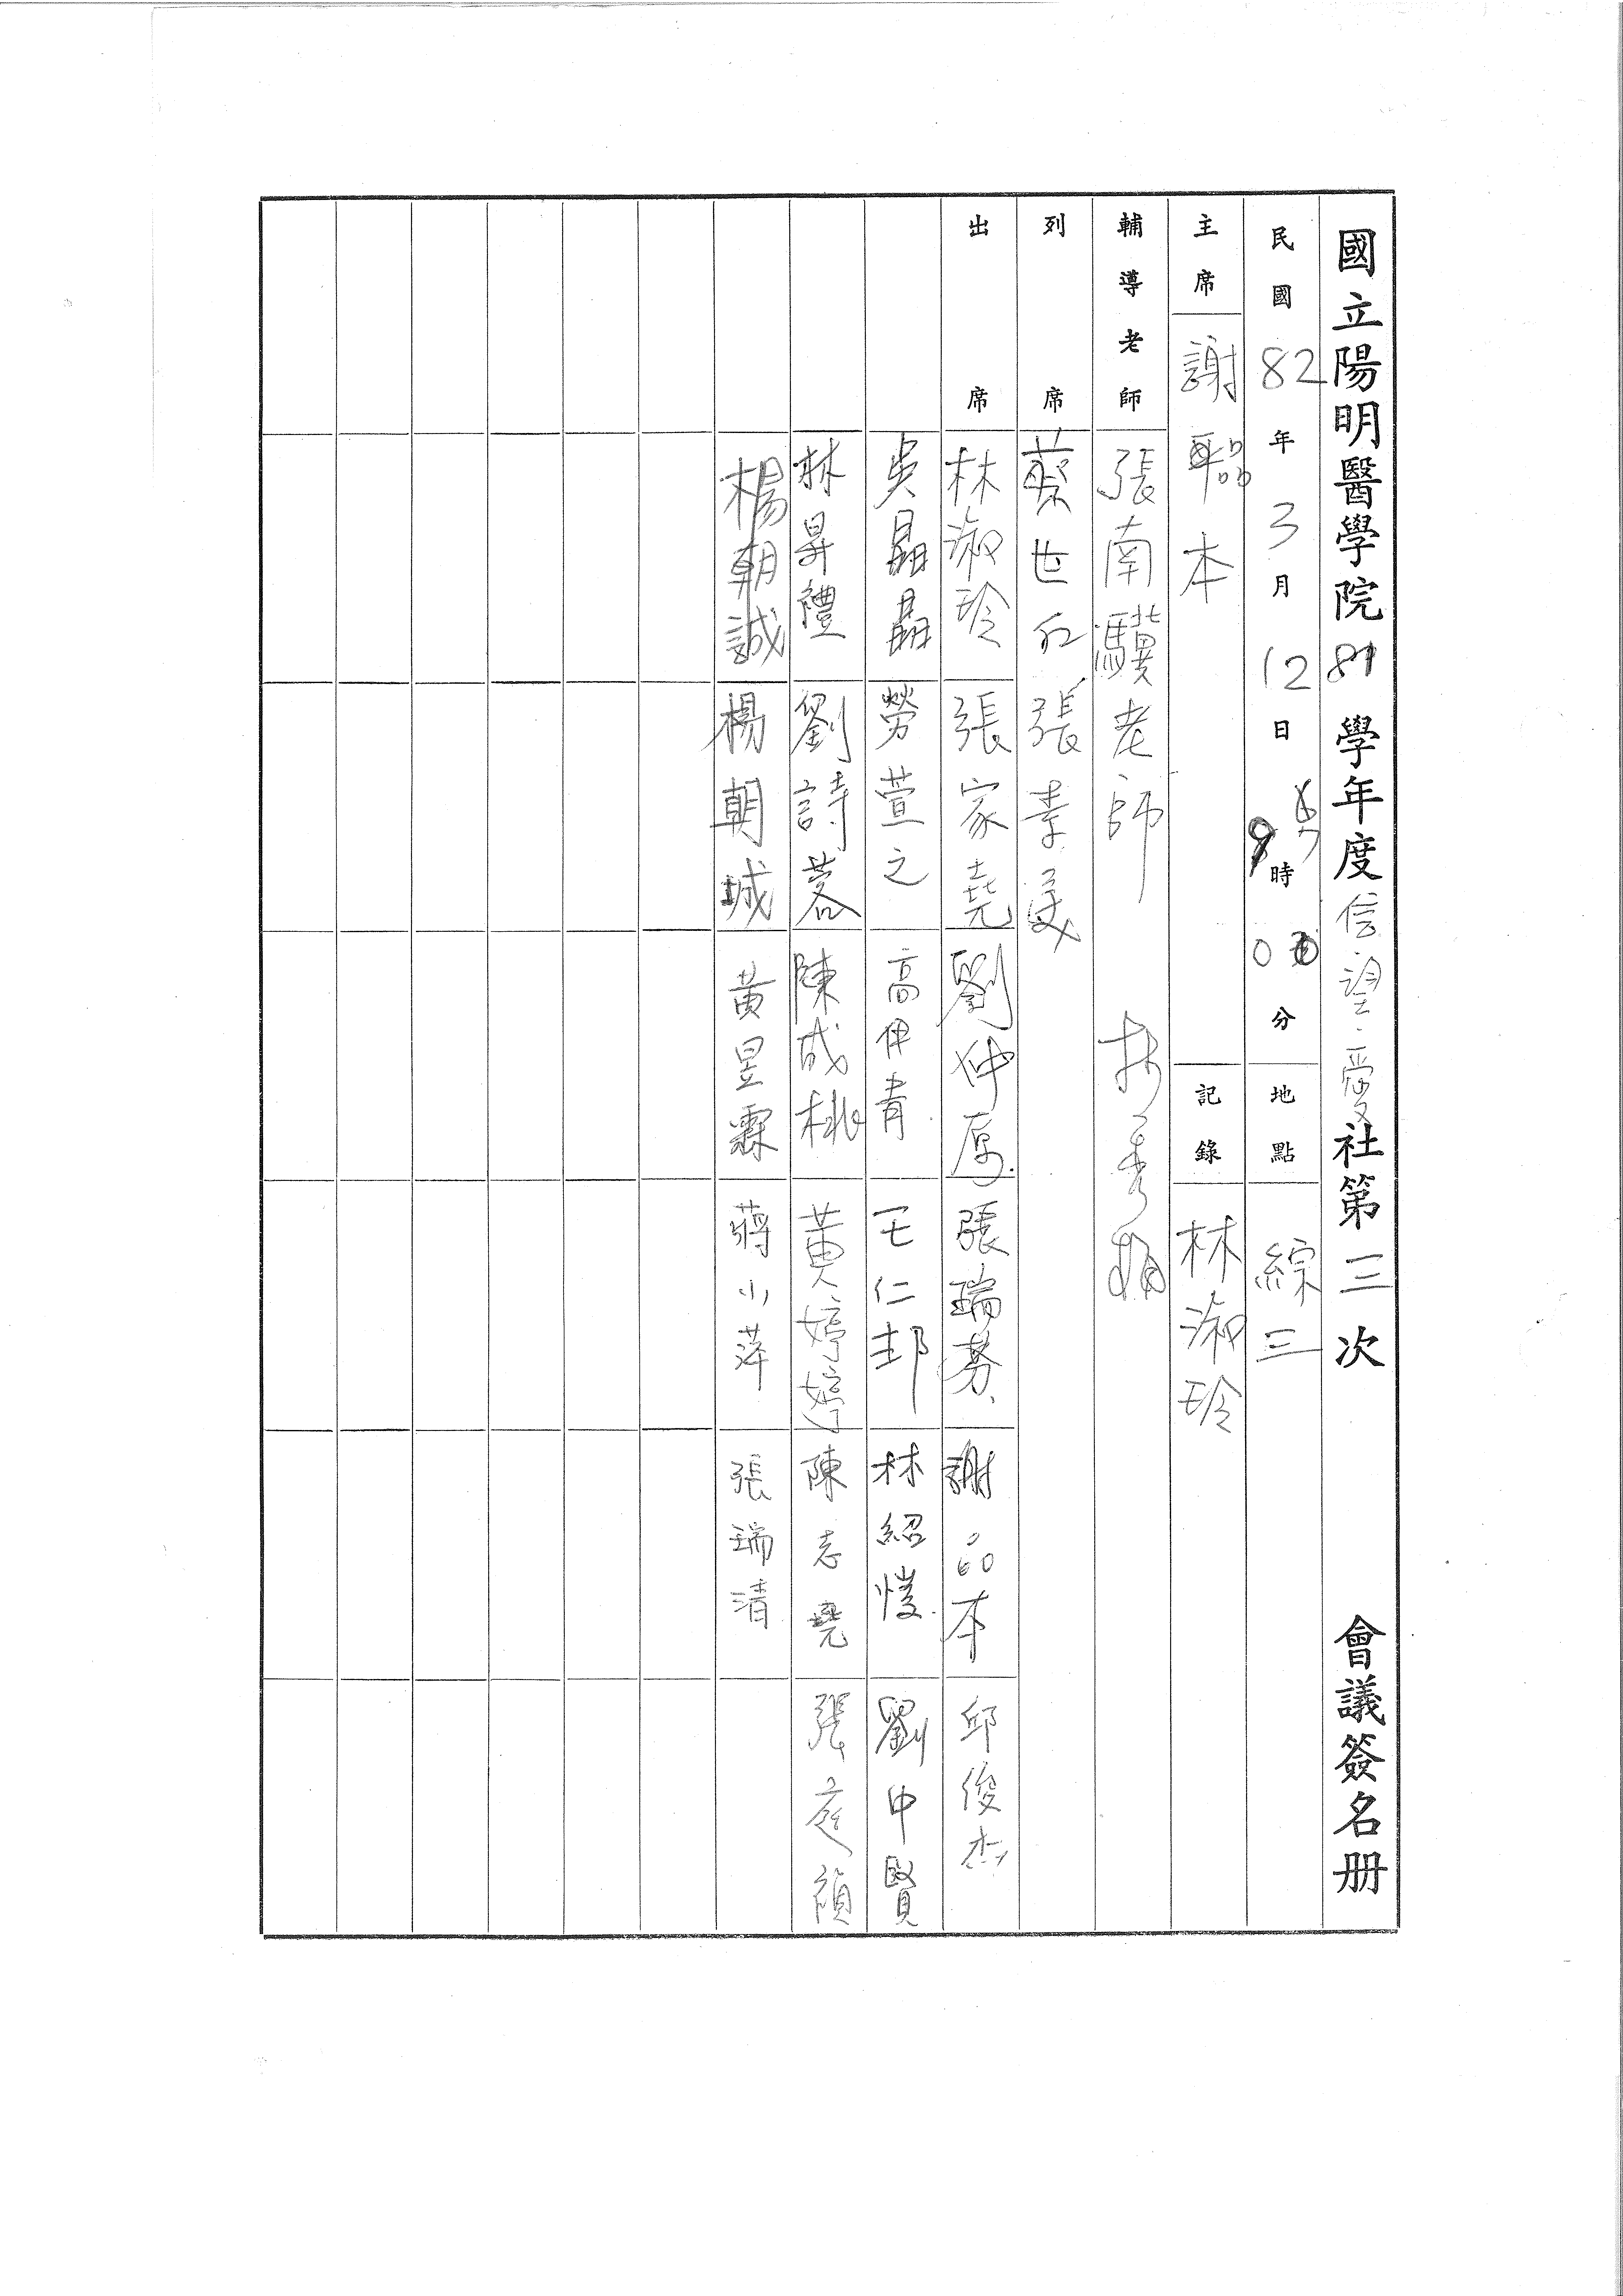 國立陽明醫學院81學年度信望愛社第三次 會議簽名册
民國82年3月12日 時00分 地點 綜三
主席 謝品本 記錄 林淑玲
輔導老師 張南驥老師 林秀
列席 蔡世 張素美
出席 林淑玲 張家堯 劉仲原 張瑞芬 謝品本 邱俊杰
吳晶晶 勞萱之 高伊青 王仁邦 林紹愷 劉中賢
林昇禮 劉詩蓉 陳成桃 黃婷婷 陳志堯 張庭禎
楊朝誠 楊朝城 黃昱霖 蔣小萍 張瑞清